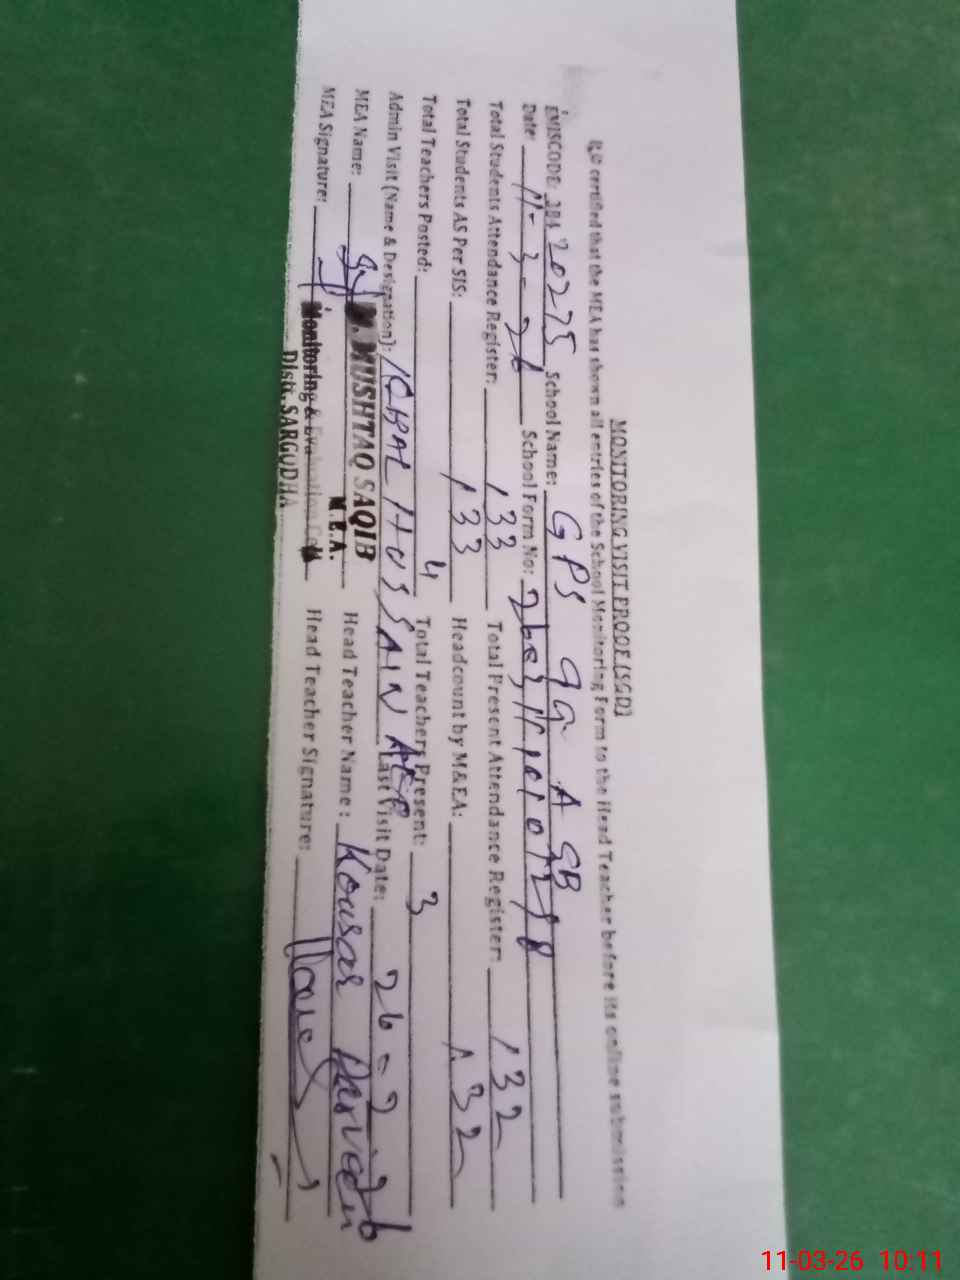 MONITORING VISIT PROOF (SGD)
It is certified that the MEA has shown all entries of the School Monitoring Form to the Head Teacher before its online submission
EMISCODE: 38420275 School Name: GPS 99 A SB
Date 11-3-26 School Form No:
Total Students Attendance Register: 133 Total Present Attendance Register: 132
Total Students AS Per SIS: 133 Headcount by M&EA: 132
Total Teachers Posted: 4 Total Teachers Present: 3
Admin Visit (Name & Designation): IQBAL HUSSAIN AEO Last Visit Date: 26-2-26
MEA Name: M. MUSHTAQ SAQIB Head Teacher Name: Kousar Parveen
M.E.A.
MEA Signature: Monitoring & Evaluation Cell Head Teacher Signature:
Distt. SARGODHA
11-03-26 10:11